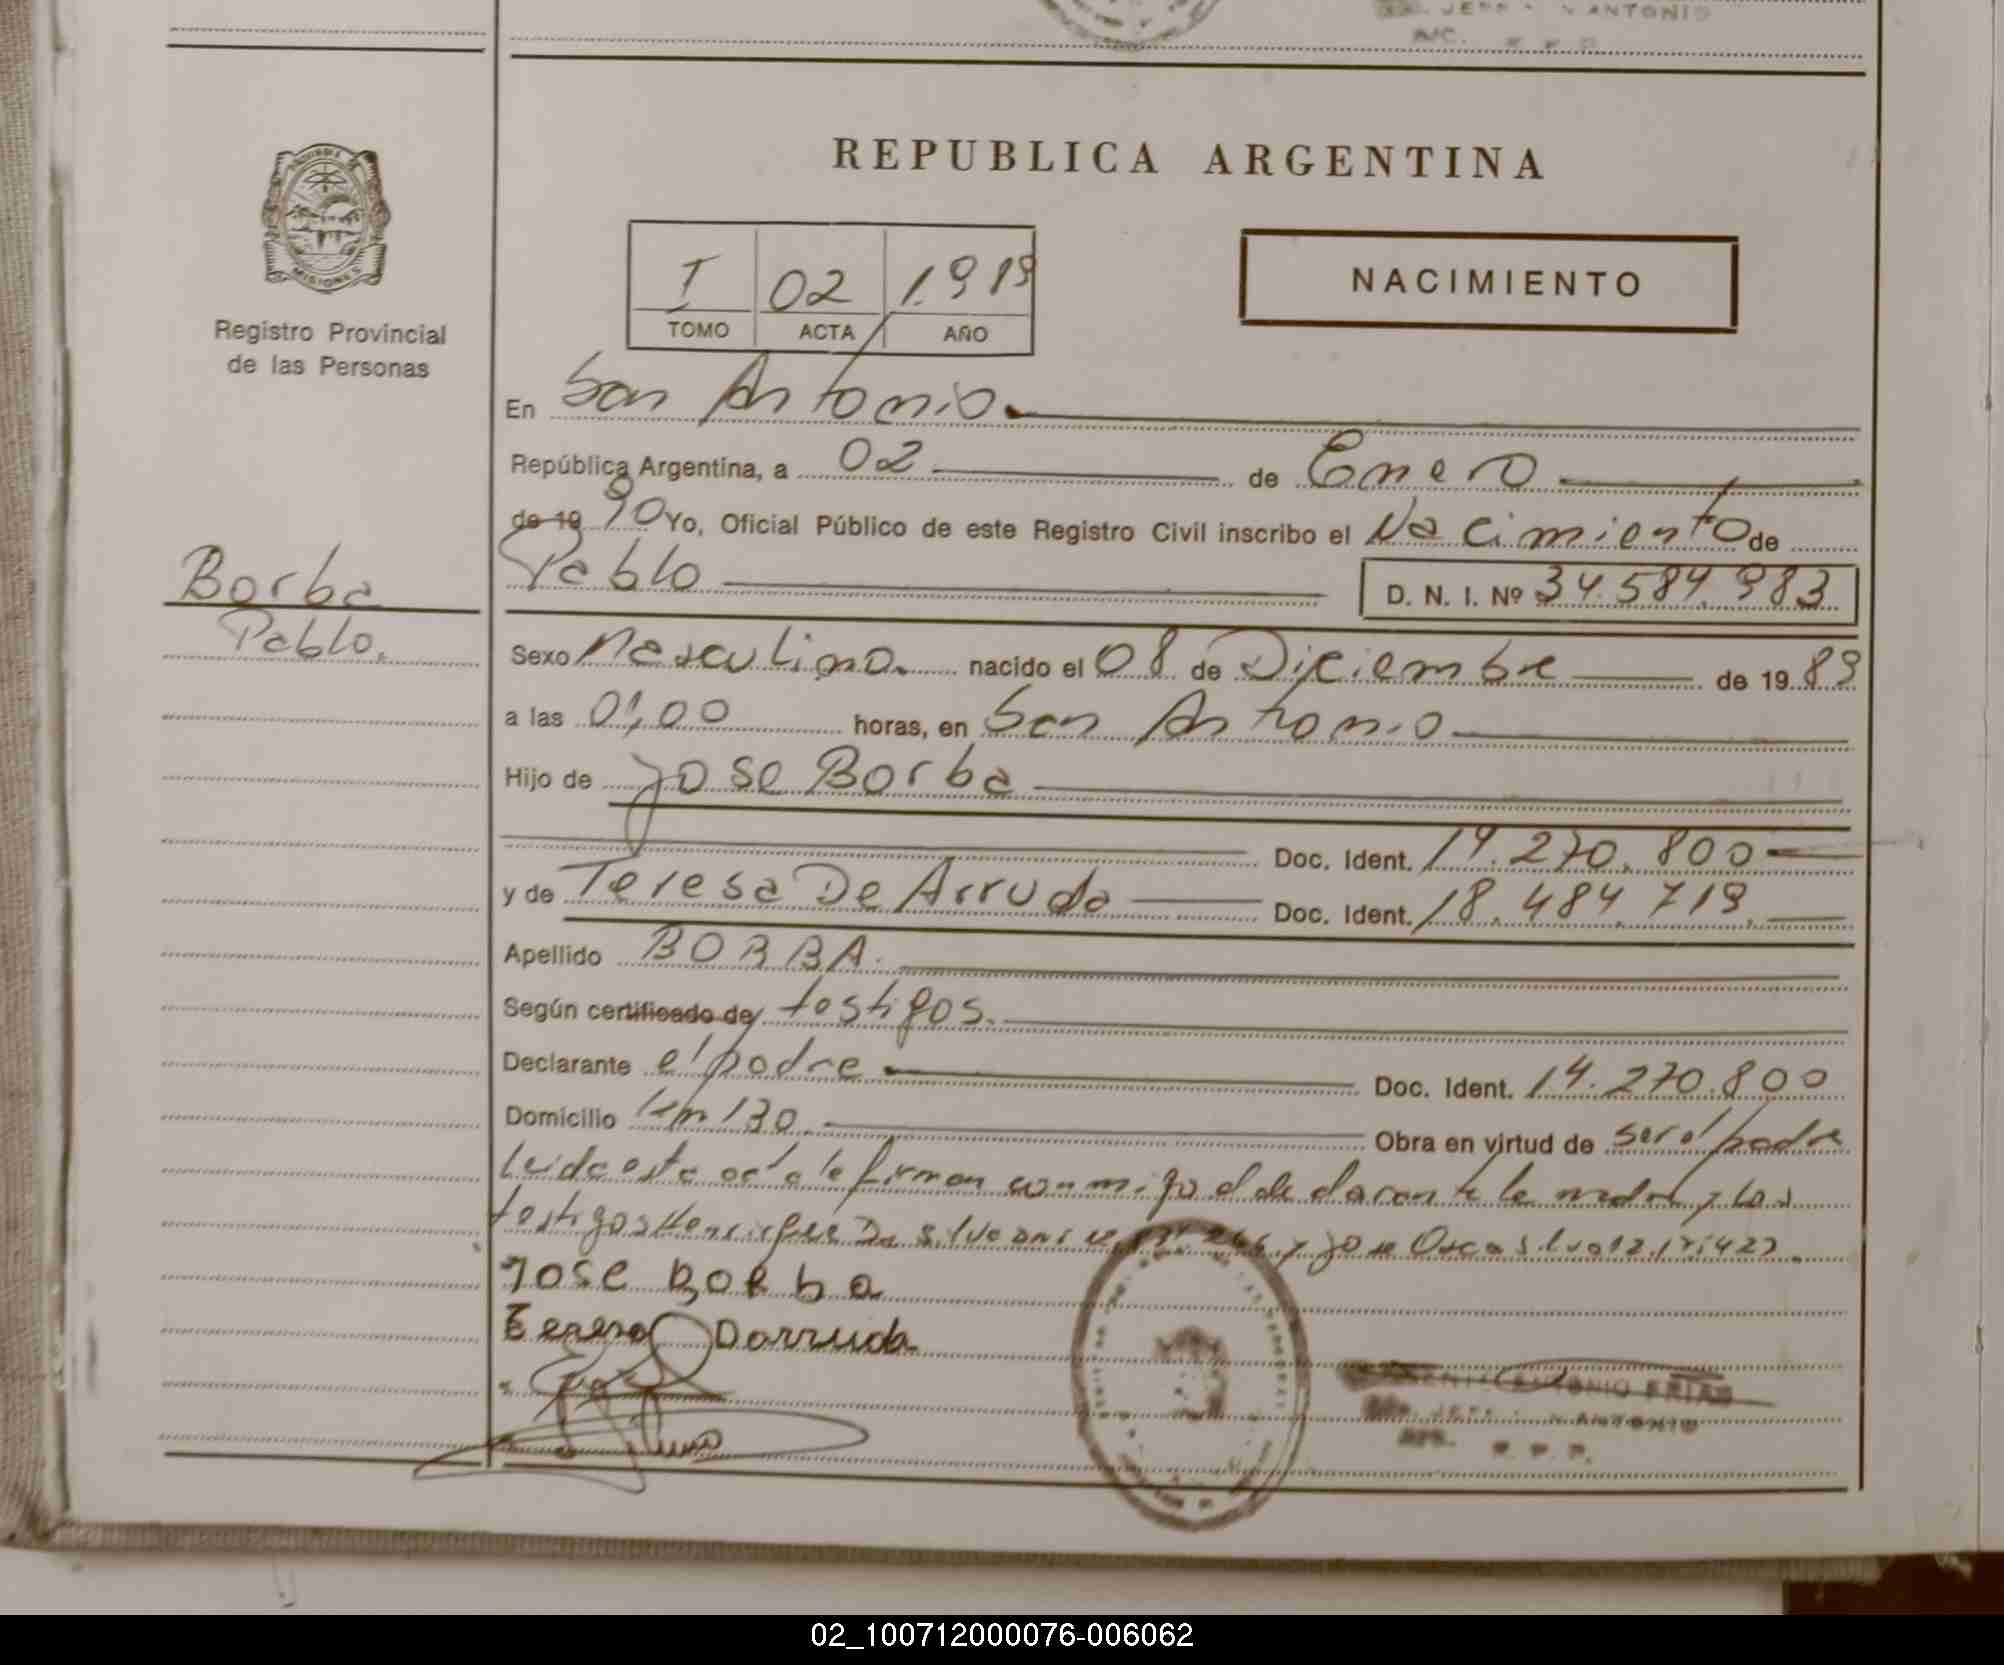 ANTONIO
REPUBLICA ARGENTINA
NACIMIENTO
I 02 1.919
TOMO ACTA AÑO
MISIONES
Registro Provincial
de las Personas
En San Antonio.
República Argentina, a 02 de Enero
de 19 90 Yo, Oficial Público de este Registro Civil inscribo el Nacimiento de
Borba
Pablo.
Pablo D. N. I. Nº 34.584.983
Sexo Masculino. nacido el 08 de Diciembre de 19 89
a las 01,00 horas, en San Antonio
Hijo de Jose Borba
Doc. Ident. 14.270.800
y de Teresa De Arruda Doc. Ident. 18.484.719.
Apellido BORBA.
Según certificado de testigos.
Declarante el padre Doc. Ident. 14.270.800
Domicilio Km 130 Obra en virtud de ser el padre
Leida esta acta le firman conmigo el declarante la madre y los
testigos Da Silva y Jose
Jose Borba
Teresa Darruda
ANTONIO FRIAS
ANTONIO
R. P. P.
02_100712000076-006062